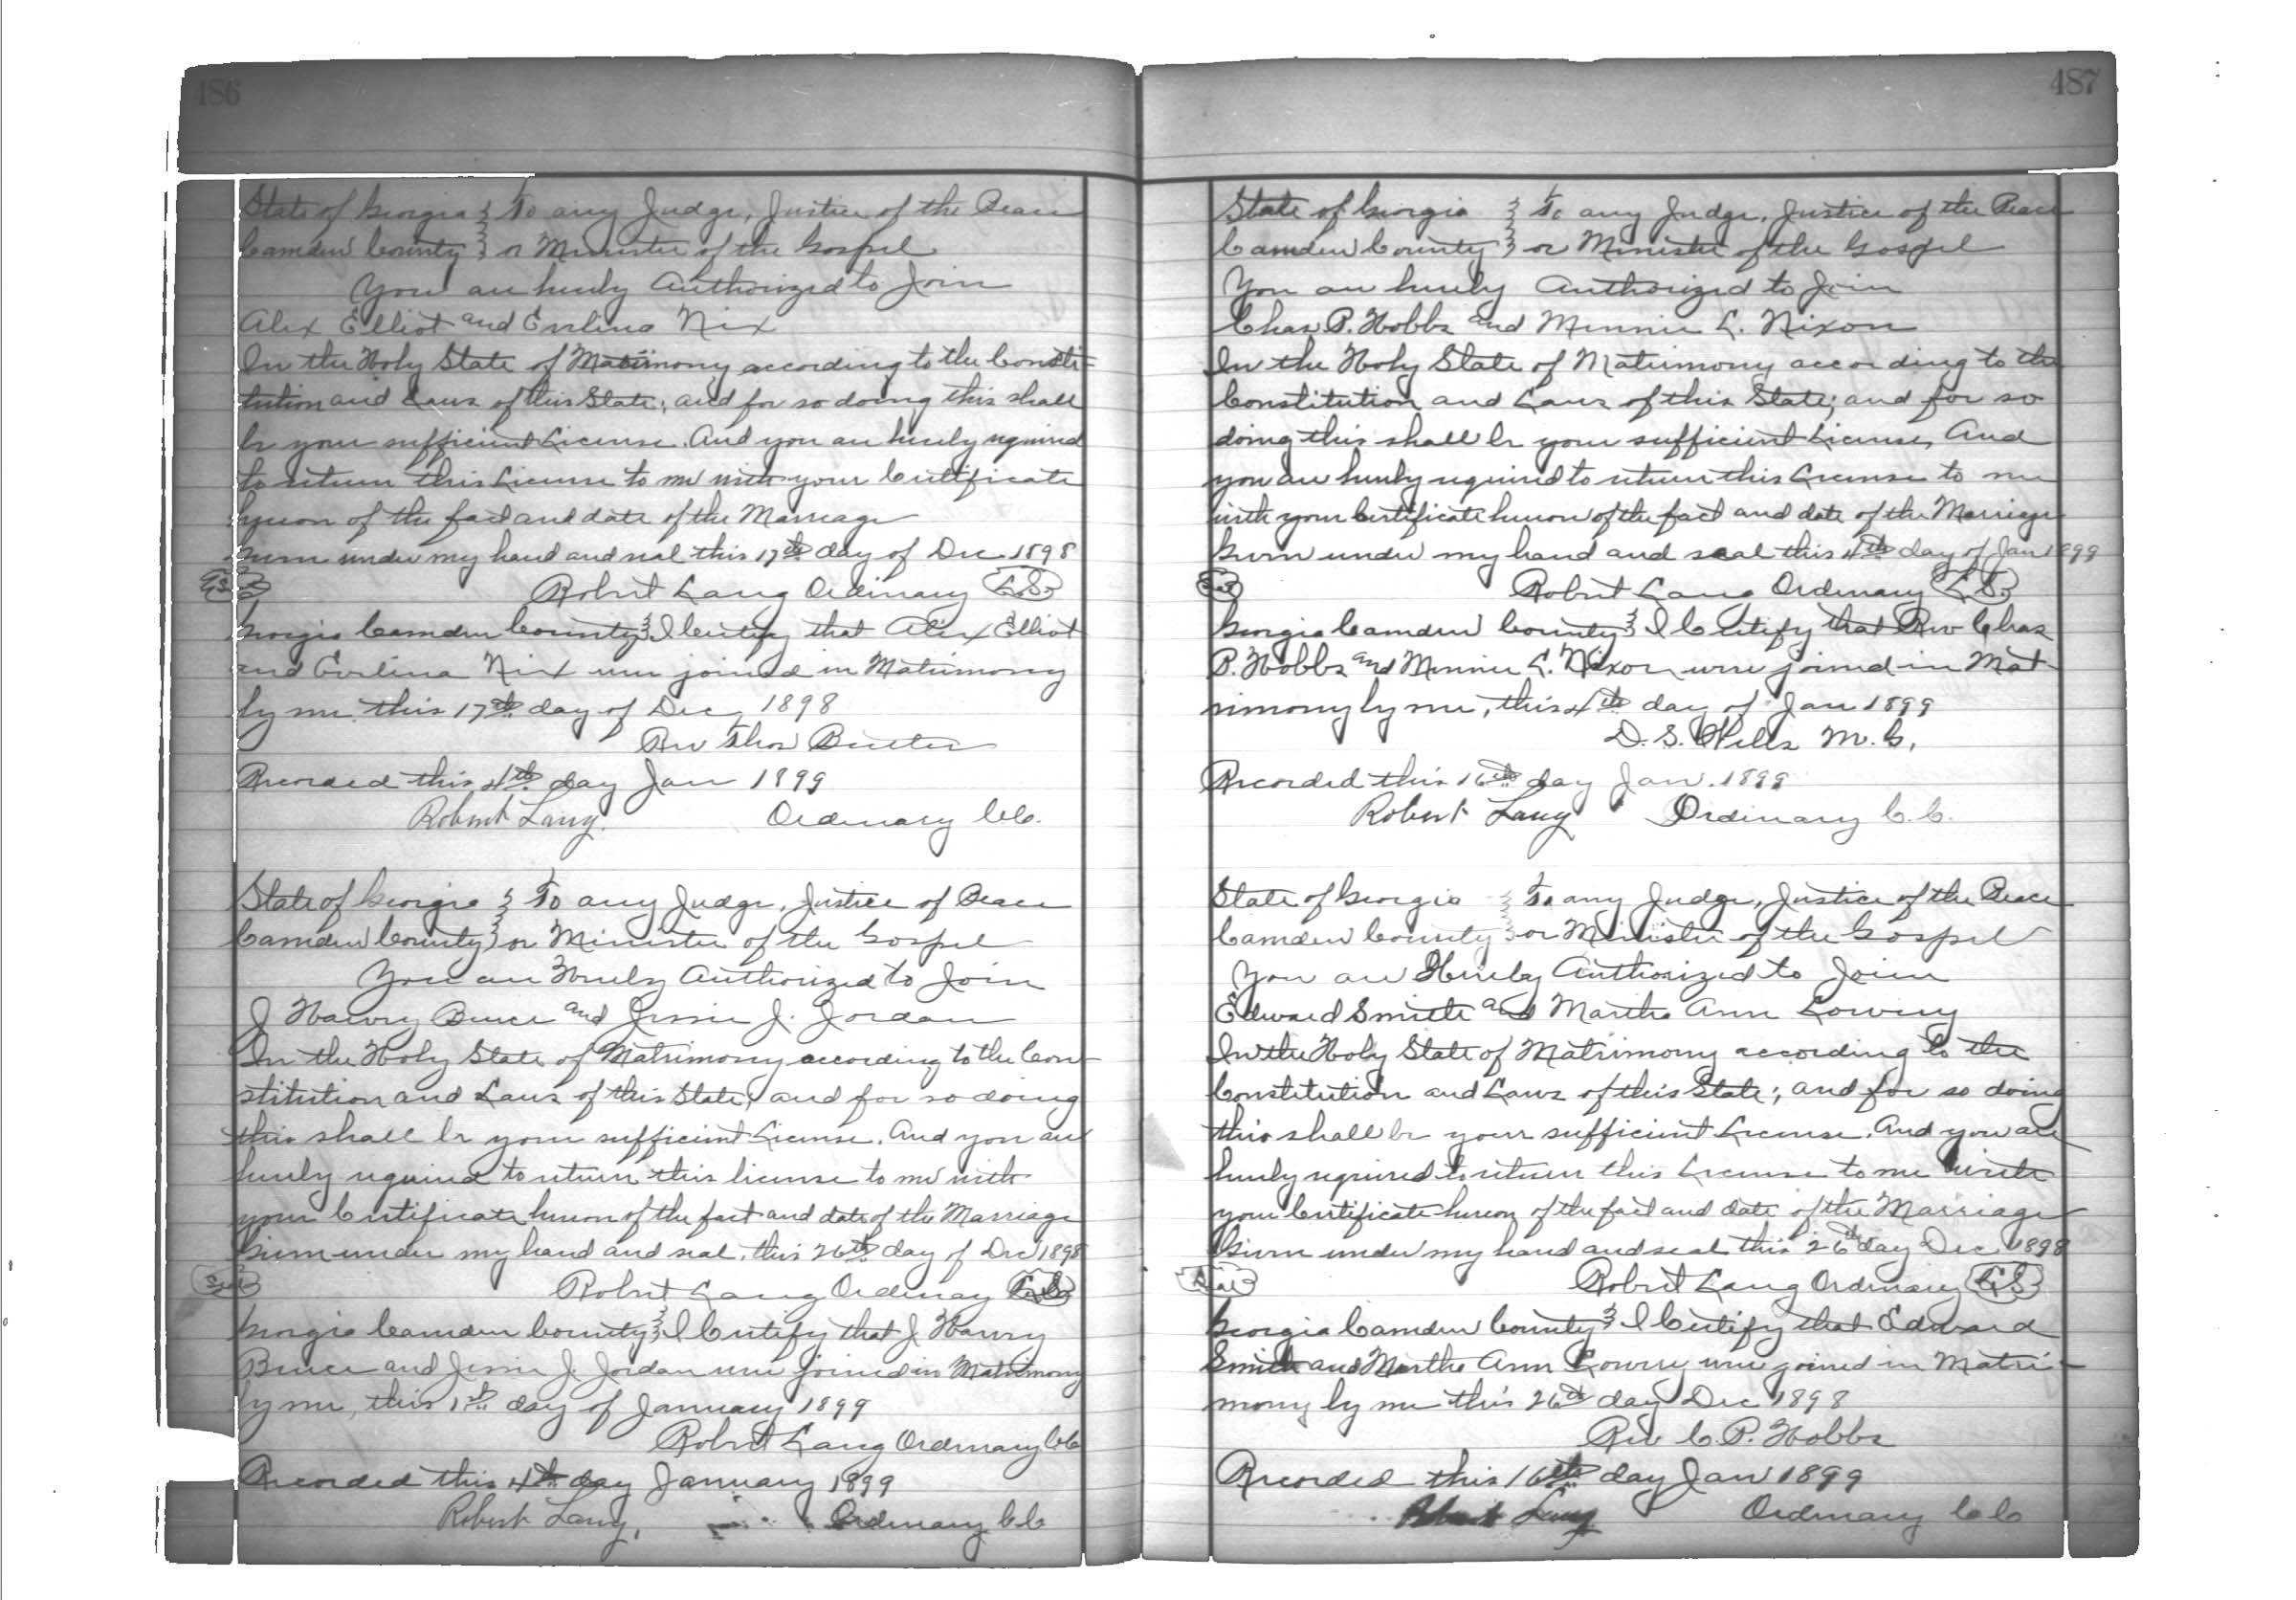 486
State of Georgia } To any Judge, Justice of the Peace
Camden County } or Minister of the Gospel
You are hereby Authorized to Join
Alex Elliot and Evelina Nix
In the Holy State of Matrimony according to the Consti=
tution and Laws of this State; and for so doing this shall
be your sufficient License. And you are hereby required
to return this License to me with your Certificate
hereon of the fact and date of the Marriage
Given under my hand and seal this 17th day of Dec 1898
Robert Lang Ordinary L.S.
Georgia Camden County } I Certify that Alex Elliot
and Evelina Nix were joined in Matrimony
by me this 17th day of Dec, 1898
Rev Thos Butler
Recorded this 4th day Jan 1899
Robert Lang. Ordinary C.C.
State of Georgia } To any Judge, Justice of Peace
Camden County } or Minister of the Gospel
You are Hereby Authorized to Join
J Harvey Bruce and Jessie J. Jordan
In the Holy State of Matrimony according to the Con-
stitution and Laws of this State, and for so doing
this shall be your sufficient License. And you are
hereby required to return this license to me with
your Certificate hereon of the fact and date of the Marriage
Given under my hand and seal, this 26th day of Dec 1898
Seal Robert Lang Ordinary L.S.
Georgia Camden County } I Certify that J Harvey
Bruce and Jessie J. Jordan were joined in Matrimony
by me, this 1st day of January 1899
Robert Lang Ordinary C.C.
Recorded this 4th day January 1899
Robert Lang, Ordinary C.C
487
State of Georgia } To any Judge, Justice of the Peace
Camden County } or Minister of the Gospel
You are hereby Authorized to Join
Chas P. Hobbs and Minnie L. Nixon
In the Holy State of Matrimony according to the
Constitution and Laws of this State; and for so
doing this shall be your sufficient License, And
you are hereby required to return this License to me
with your Certificate hereon of the fact and date of the Marriage
Given under my hand and seal this 4th day of Jan 1899
Seal Robert Lang Ordinary L.S.
Georgia Camden County } I Certify that Rev Chas
P. Hobbs and Minnie L. Nixon were joined in Mat-
rimony by me, this 4th day of Jan 1899
D. S. Wells M.G.
Recorded this 16th day Jan. 1899
Robert Lang Ordinary C.C.
State of Georgia } To any Judge, Justice of the Peace
Camden County } or Minister of the Gospel
You are Hereby Authorized to Join
Edward Smith and Martha Ann Lowery
In the Holy State of Matrimony according to the
Constitution and Laws of this State; and for so doing
this shall be your sufficient License. And you are
hereby required to return this License to me with
your Certificate hereon of the fact and date of the Marriage
Given under my hand and seal this 26th day Dec 1898
Seal Robert Lang Ordinary L.S.
Georgia Camden County } I Certify that Edward
Smith and Martha Ann Lowery were joined in Matri-
mony by me this 26th day Dec 1898
Rev C.P. Hobbs
Recorded this 16th day Jan 1899
Robert Lang Ordinary C.C